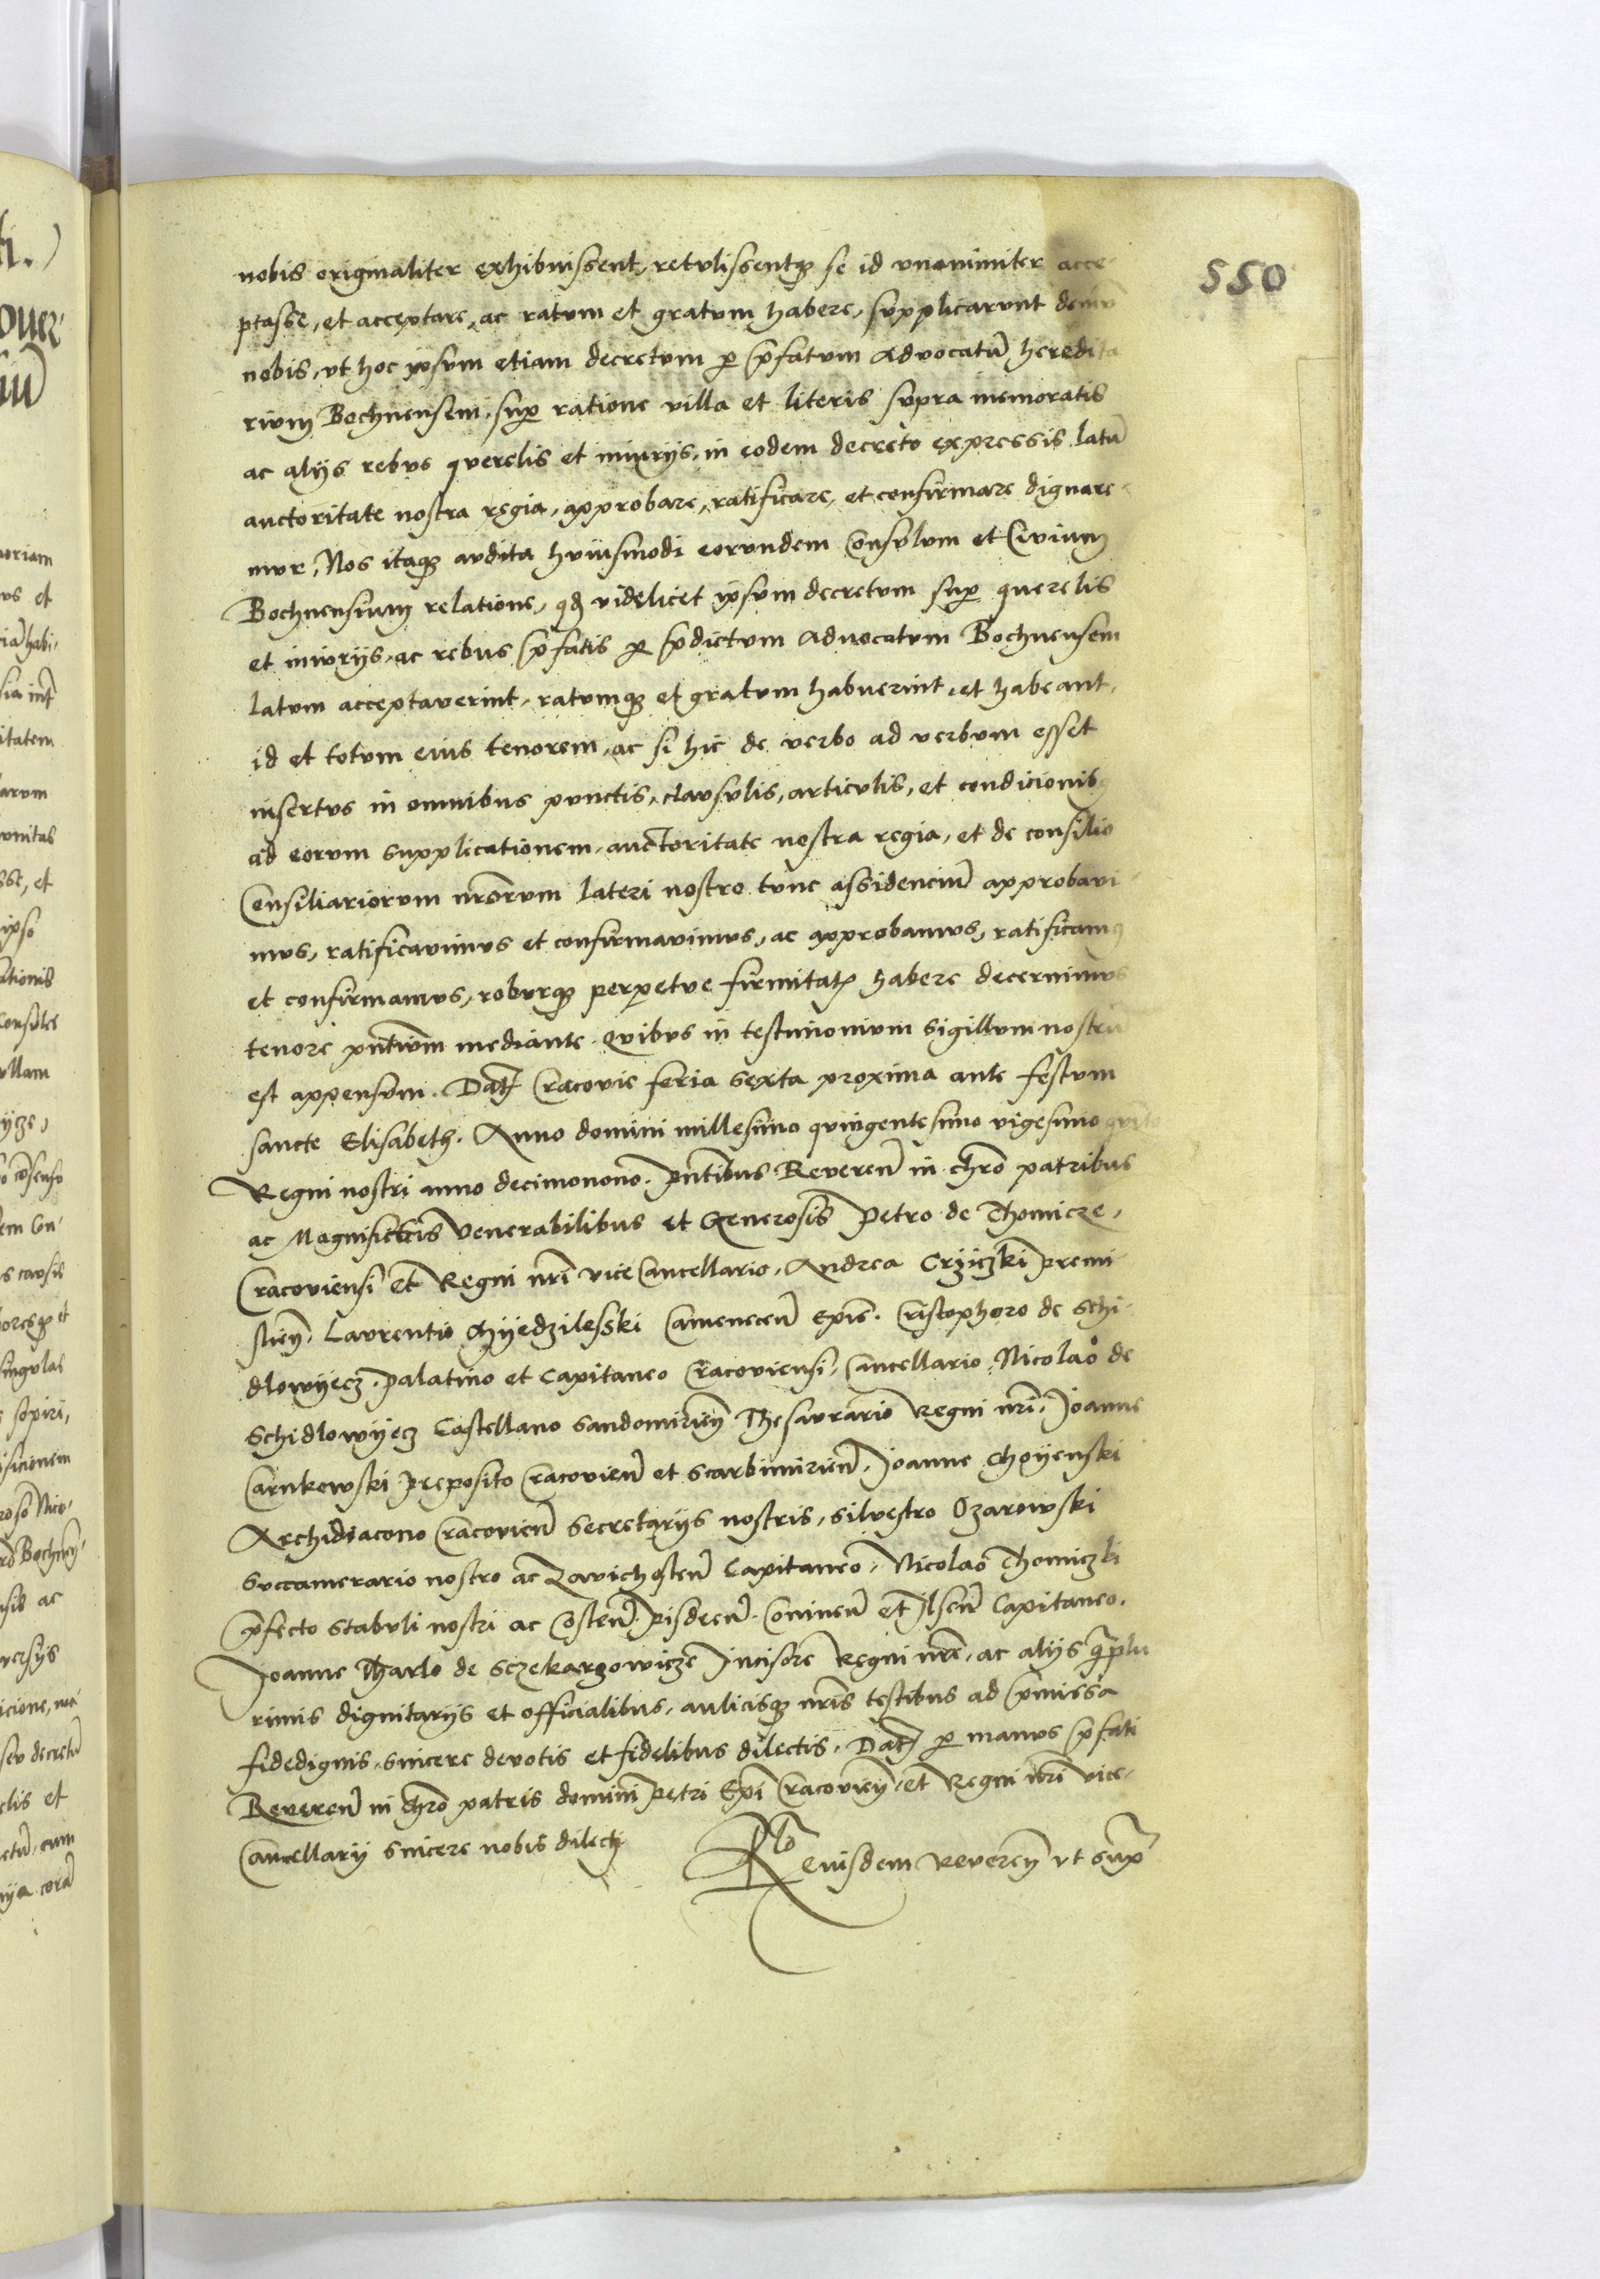 550
nobis originaliter exhibuissent, retulissentq₃ se id vnanimiter acce-
ptasse, et acceptare, ac ratum et gratum habere, supplicarunt demū
nobis, vt hoc ipsum etiam decretum p̱ p̄fatum Aduocatū heredita
rium Bochnensem, sup̱ ratione villa et literis supra memoratis
ac alijs rebus querelis et iniurijs, in eodem decreto expressis latū
auctoritate nostra regia, approbare, ratificare, et confirmare dignare-
mur, Nos itaq₃ audita huiusmodi eorundem Consulum et Ciuium
Bochnensium relatione, qd̄ videlicet ipsum decretum sup̱ querelis
et iniurijs, ac rebus p̄fatis p̱ p̄dictum Aduocatum Bochnensem
latum acceptauerint, ratumq₃ et gratum habuerint, et habeant,
id et totum eius tenorem, ac si hic de verbo ad verbum esset
insertus in omnibus punctis, clausulis, articulis, et condicionib₃
ad eorum supplicationem, auctoritate nostra regia, et de consilio
Consiliariorum nrōrum lateri nostro tunc assidenciū approbaui-
mus, ratificauimus et confirmauimus, ac approbamus, ratificamꝰ
et confirmamus, roburq₃ perpetue firmitatꝭ habere decernimus
tenore pn̄tium mediante. Quibus in testimonium Sigillum nostrū
est appensum. Datꝭ Cracouie feria sexta proxima ante festum
sancte Elisabeth. Anno domini millesimo quingentesimo vigesimo qui̅to
Regni nostri anno decimonono. Pn̄tibus Reueren̄ in chr̄o patribus
ac Magnificis Venerabilibus et Generosis Petro de Thomicze,
Cracouiensi et Regni nr̄i viceCancellario, Andrea Crziczki Premi
slien̄. Laurentio Myedzilesski Camenecen̄ Ep̄is. Cristophoro de Schi-
dlowyecz. Palatino et Capitaneo Cracouiensi, Cancellario, Nicolao de
Schidlowyecz Castellano Sandomirien̄ Thesaurario Regni nr̄i, Joanne
Carnkowski Preposito Cracouien̄ et Scarbimirien̄. Joanne Choyenski
Archidiacono Cracouien̄ Secretarijs nostris, Siluestro Ozarowski
Succamerario nostro ac Zauichosten̄ Capitaneo, Nicolao Thomiczki
p̄fecto Stabuli nostri ac Costen̄. Pisdren̄. Coninen̄ et Ilsen̄ Capitaneo.
Joanne Tharlo de Sczekarzowicze Incisore Regni nr̄i, ac alijs q̄plu
rimis dignitarijs et officialibus, aulicisq₃ nr̄is testibus ad p̄missa
fidedignis, sincere deuotis et fidelibus dilectis. Datꝭ p̱ manus p̄fati
Reueren̄ in chr̄o patris domini Petri Ep̄i Cracouien̄, et Regni nr̄i vice-
Cancellarij sincere nobis dilecti
Rlo eiusdem Reueren̄ vt sup̄